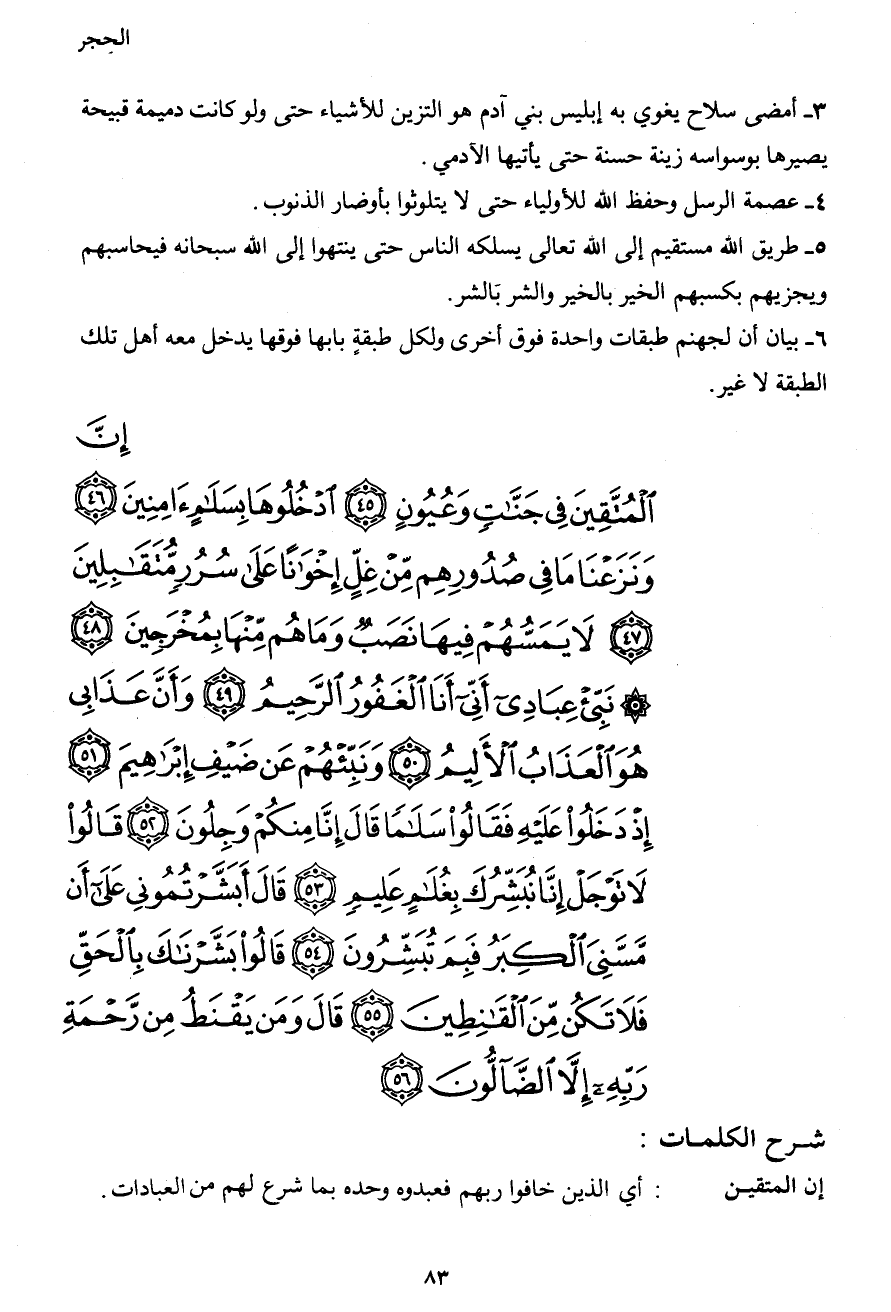 الحجر
٣ـ أمضى سلاح يغوي به إبليس بني آدم هو التزين للأشياء حتى ولو كانت دميمة قبيحة
يصيرها بوسواسه زينة حسنة حتى يأتيها الآدمي .
٤ـ عصمة الرسل وحفظ الله للأولياء حتى لا يتلوثوا بأوضار الذنوب .
٥ـ طريق الله مستقيم إلى الله تعالى يسلكه الناس حتى ينتهوا إلى الله سبحانه فيحاسبهم
ويجزيهم بكسبهم الخير بالخير والشر بَالشر.
٦ـ بيان أن لجهنم طبقات واحدة فوق أخرى ولكل طبقةٍ بابها فوقها يدخل معه أهل تلك
الطبقة لا غير.
إِنَّ
ٱلْمُتَّقِينَ فِى جَنَّٰتٍ وَعُيُونٍ ﴿٤٥﴾ ٱدْخُلُوهَا بِسَلَٰمٍ ءَامِنِينَ ﴿٤٦﴾
وَنَزَعْنَا مَا فِى صُدُورِهِم مِّنْ غِلٍّ إِخْوَٰنًا عَلَىٰ سُرُرٍ مُّتَقَٰبِلِينَ
﴿٤٧﴾ لَا يَمَسُّهُمْ فِيهَا نَصَبٌ وَمَا هُم مِّنْهَا بِمُخْرَجِينَ ﴿٤٨﴾
۞ نَبِّئْ عِبَادِىٓ أَنِّىٓ أَنَا ٱلْغَفُورُ ٱلرَّحِيمُ ﴿٤٩﴾ وَأَنَّ عَذَابِى
هُوَ ٱلْعَذَابُ ٱلْأَلِيمُ ﴿٥٠﴾ وَنَبِّئْهُمْ عَن ضَيْفِ إِبْرَٰهِيمَ ﴿٥١﴾
إِذْ دَخَلُوا۟ عَلَيْهِ فَقَالُوا۟ سَلَٰمًا قَالَ إِنَّا مِنكُمْ وَجِلُونَ ﴿٥٢﴾ قَالُوا۟
لَا تَوْجَلْ إِنَّا نُبَشِّرُكَ بِغُلَٰمٍ عَلِيمٍ ﴿٥٣﴾ قَالَ أَبَشَّرْتُمُونِى عَلَىٰٓ أَن
مَّسَّنِىَ ٱلْكِبَرُ فَبِمَ تُبَشِّرُونَ ﴿٥٤﴾ قَالُوا۟ بَشَّرْنَٰكَ بِٱلْحَقِّ
فَلَا تَكُن مِّنَ ٱلْقَٰنِطِينَ ﴿٥٥﴾ قَالَ وَمَن يَقْنَطُ مِن رَّحْمَةِ
رَبِّهِۦٓ إِلَّا ٱلضَّآلُّونَ ﴿٥٦﴾
شـرح الكلمـات :
إن المتقيـن : أي الذين خافوا ربهم فعبدوه وحده بما شرع لهم من العبادات .
٨٣